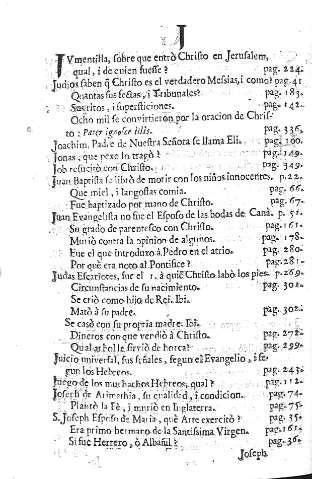 J
JUmentilla, sobre que entrò Christo en Jerusalem,
qual, i de cuien fuesse? pag. 224.
Judios saben q̃ Christo es el verdadero Messias, i como? pag. 41
Quantas sus sectas, i Tribunales? pag. 183.
Sus ritos, i supersticiones. pag. 142.
Ocho mil se convirtieron por la oracion de Chris-
to: Pater ignosce illis. pag. 336.
Joachim, Padre de Nuestra Señora se llama Eli. pag. 100.
Jonas, que pexe lo tragò? pag. 149.
Job resucitò con Christo. pag. 349.
Juan Baptista se librò de morir con los niños innocentes. p. 22.
Que miel, i langostas comia. pag. 66.
Fue baptizado por mano de Christo. pag. 67.
Juan Evangelista no fue el Esposo de las bodas de Canà. p. 51.
Su grado de parentesco con Christo. pag. 161.
Muriò contra la opinion de algunos. pag. 178.
Fue el que introduxo à Pedro en el atrio. pag. 280.
Por què era noto al Pontifice? pag. 281.
Judas Escariotes, fue el 1. à quiẽ Christo labò los pies. p. 269.
Circunstancias de su nacimiento. pag. 302.
Se criò como hijo de Rei. Ibi.
Matò à su padre. pag. 302.
Se casò con su propria madre. Ibi.
Dineros con que vendiò à Christo. pag. 272.
Qual arbol le sirviò de horca? pag. 299.
Juicio universal, sus señales, segun el Evangelio, i se-
gun los Hebreos. pag. 243.
Juego de los muchachos Hebreos, qual? pag. 112.
Joseph de Arimathia, su qualidad, i condicion. pag. 74.
Plantò la Fè, i muriò en Inglaterra. pag. 75.
S. Joseph Esposo de Maria, què Arte exercitò? pag. 35.
Era primo hermano de la Santissima Virgen. pag. 161.
Si fue Herrero, ò Albañil? pag. 36.
Joseph